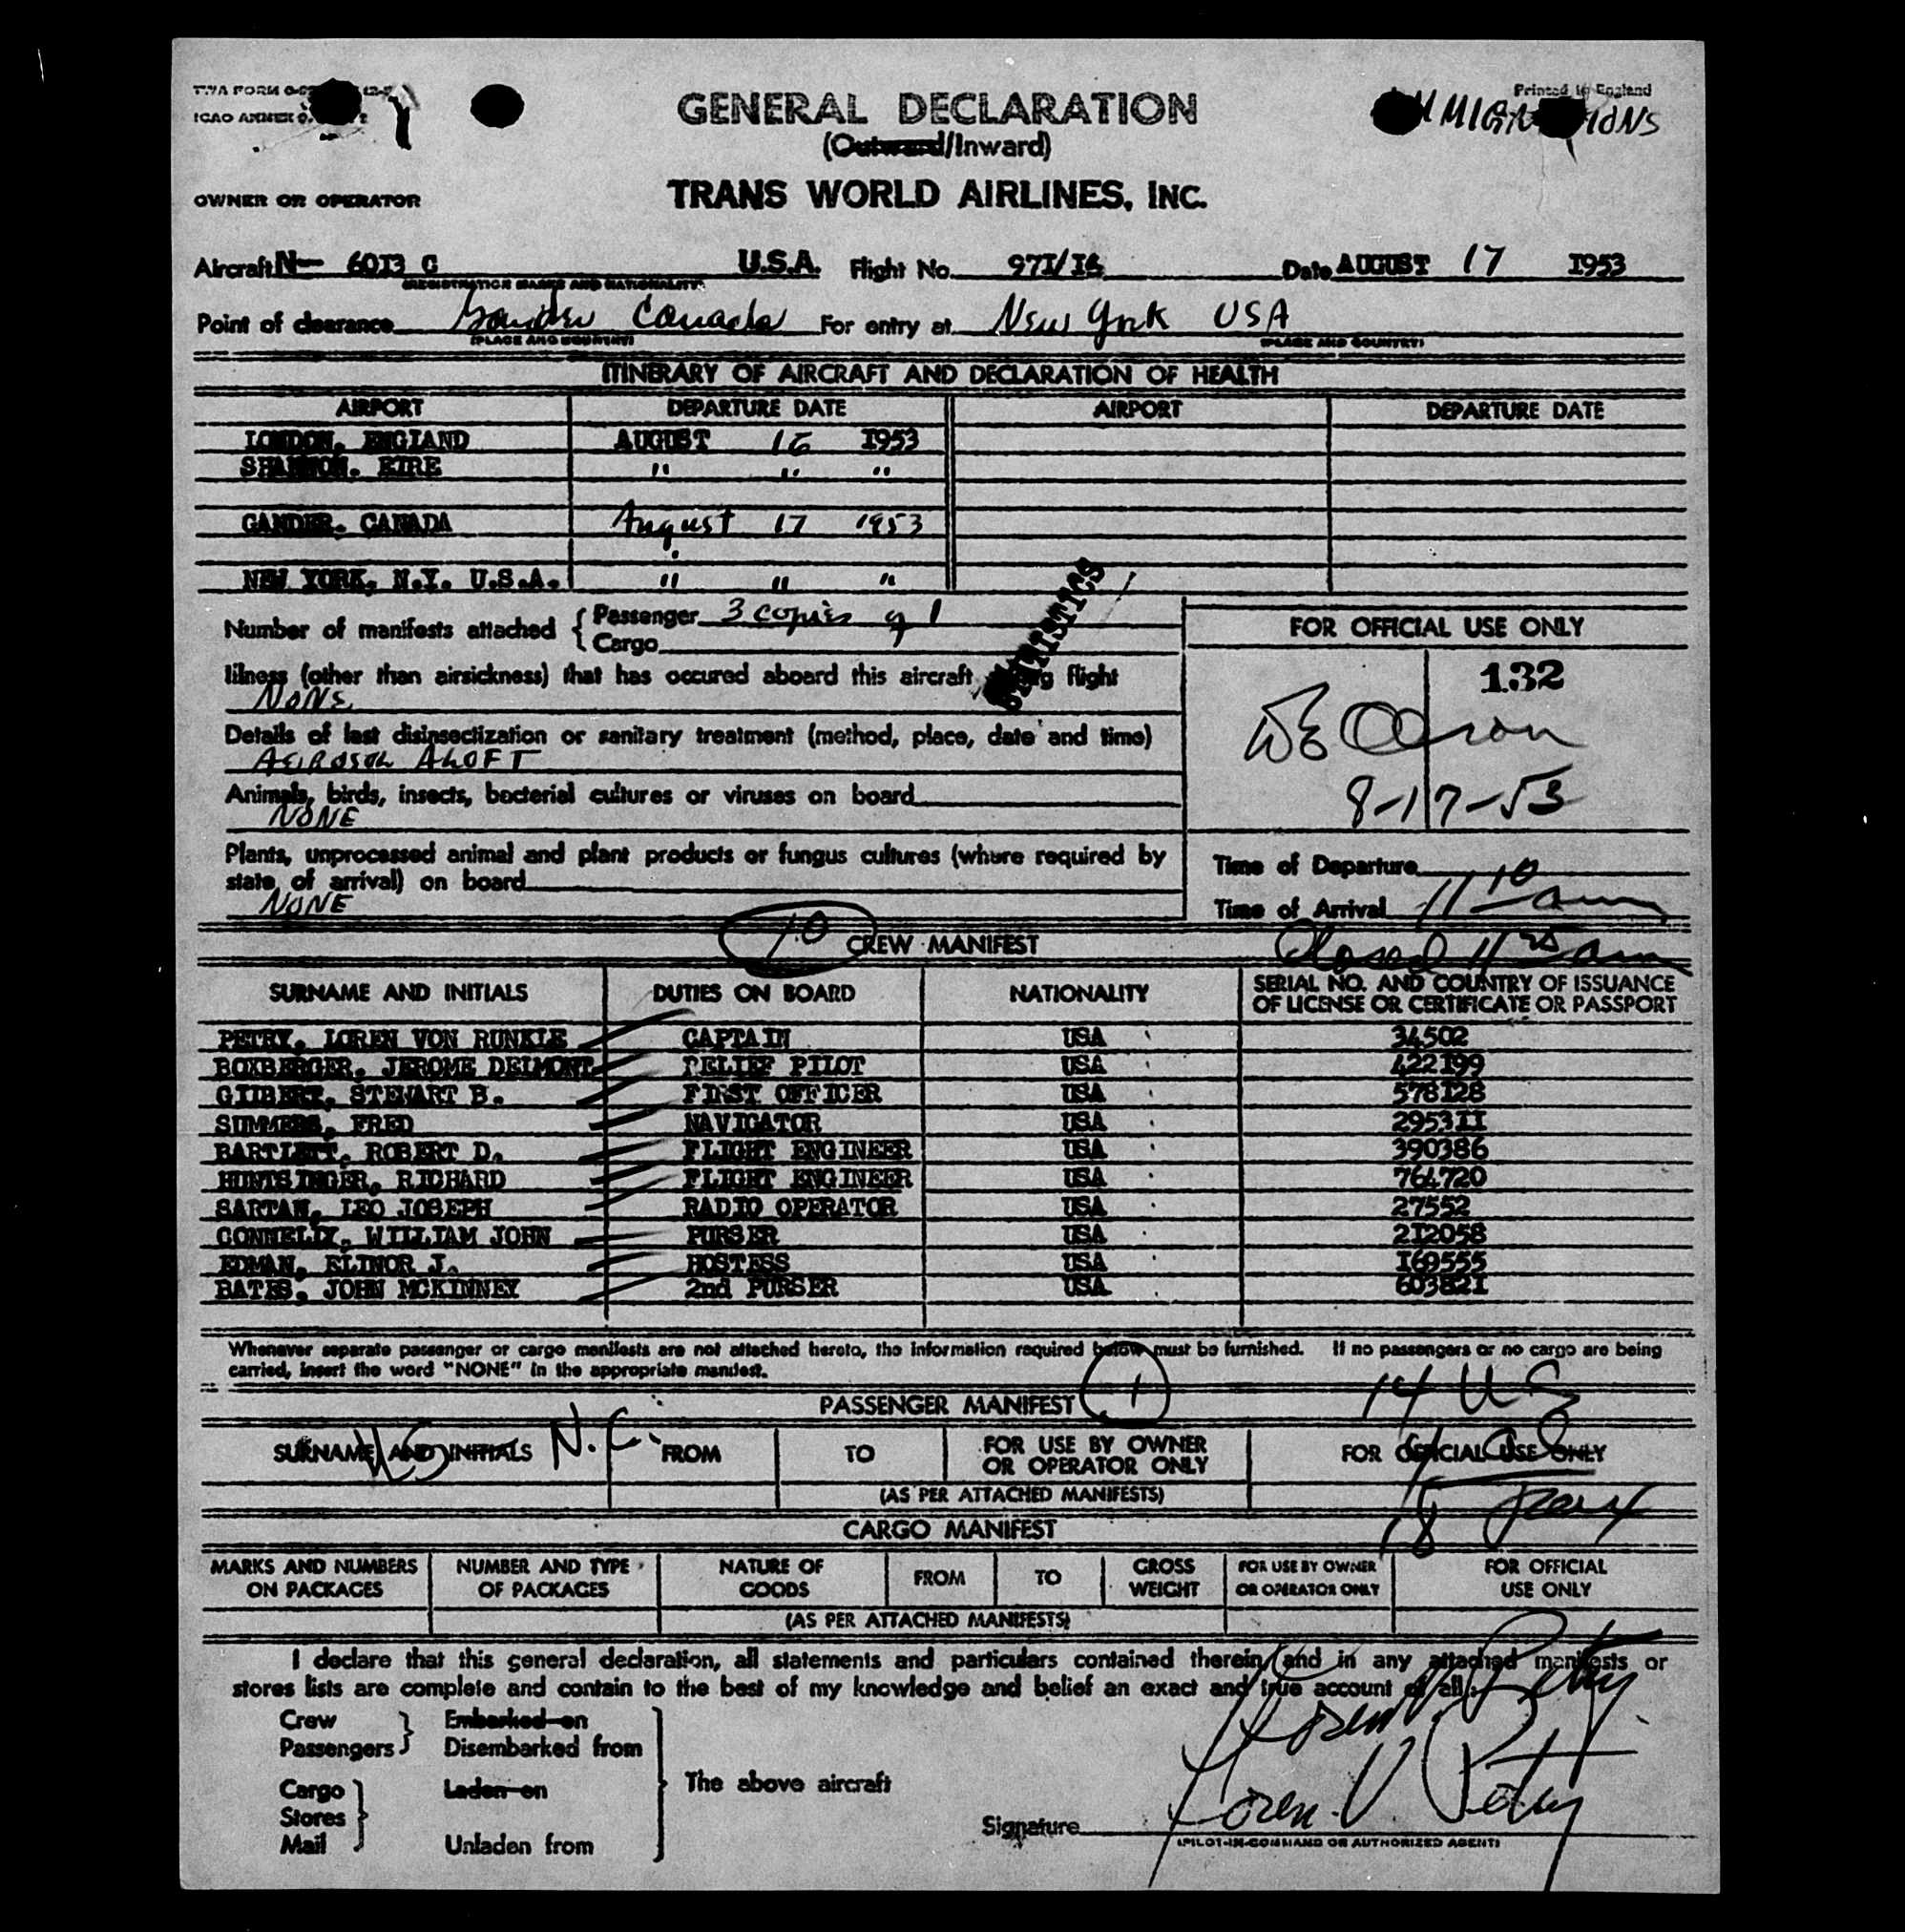 TWA FORM
ICAO ANNEX 9,
Printed in England
GENERAL DECLARATION
(Outward/Inward)
OWNER OR OPERATOR
TRANS WORLD AIRLINES, INC.
Aircraft N— 60I3 C U.S.A. Flight No. 97I/I6 Date AUGUST 17 I953
(REGISTRATION MARKS AND NATIONALITY)
Point of clearance Gander Canada For entry at New York USA
(PLACE AND COUNTRY) (PLACE AND COUNTRY)
ITINERARY OF AIRCRAFT AND DECLARATION OF HEALTH
AIRPORT DEPARTURE DATE AIRPORT DEPARTURE DATE
LONDON, ENGLAND AUGUST 16 I953
SHANNON, EIRE " " "
GANDER, CANADA August 17 1953
NEW YORK, N.Y. U.S.A. " " "
Number of manifests attached { Passenger 3 copies of 1
Cargo
STATISTICS
Illness (other than airsickness) that has occured aboard this aircraft during flight
NONE
Details of last disinsectization or sanitary treatment (method, place, date and time)
AEROSOL ALOFT
Animals, birds, insects, bacterial cultures or viruses on board
NONE
Plants, unprocessed animal and plant products or fungus cultures (where required by
state of arrival) on board
NONE
FOR OFFICIAL USE ONLY
132
8-17-53
Time of Departure
Time of Arrival 11 10 am
Closed 11 am
10
CREW MANIFEST
SURNAME AND INITIALS DUTIES ON BOARD NATIONALITY SERIAL NO. AND COUNTRY OF ISSUANCE
OF LICENSE OR CERTIFICATE OR PASSPORT
PETRY, LOREN VON RUNKLE CAPTAIN USA 34502
BOXBERGER, JEROME DELMONT RELIEF PILOT USA 422I99
GILBERT, STEWART B. FIRST OFFICER USA 578I28
SUMMERS, FRED NAVIGATOR USA 2953II
BARTLETT, ROBERT D. FLIGHT ENGINEER USA 390386
HUNTSINGER, RICHARD FLIGHT ENGINEER USA 764720
SARTAN, LEO JOSEPH RADIO OPERATOR USA 27552
CONNELLY, WILLIAM JOHN PURSER USA 2I2058
EDMAN, ELINOR J. HOSTESS USA I69555
BATES, JOHN MCKINNEY 2nd PURSER USA 60382I
Whenever separate passenger or cargo manifests are not attached hereto, the information required below must be furnished. If no passengers or no cargo are being
carried, insert the word "NONE" in the appropriate manifest.
PASSENGER MANIFEST 1
14 US
SURNAME AND INITIALS N.C. FROM TO FOR USE BY OWNER
OR OPERATOR ONLY FOR OFFICIAL USE ONLY
(AS PER ATTACHED MANIFESTS)
18
CARGO MANIFEST
MARKS AND NUMBERS
ON PACKAGES NUMBER AND TYPE
OF PACKAGES NATURE OF
GOODS FROM TO GROSS
WEIGHT FOR USE BY OWNER
OR OPERATOR ONLY FOR OFFICIAL
USE ONLY
(AS PER ATTACHED MANIFESTS)
I declare that this general declaration, all statements and particulars contained therein, and in any attached manifests or
stores lists are complete and contain to the best of my knowledge and belief an exact and true account of all:
Crew Embarked on
Passengers Disembarked from
Cargo Laden on The above aircraft
Stores
Mail Unladen from
Loren V. Petry
Signature Loren V. Petry
(PILOT-IN-COMMAND OR AUTHORIZED AGENT)